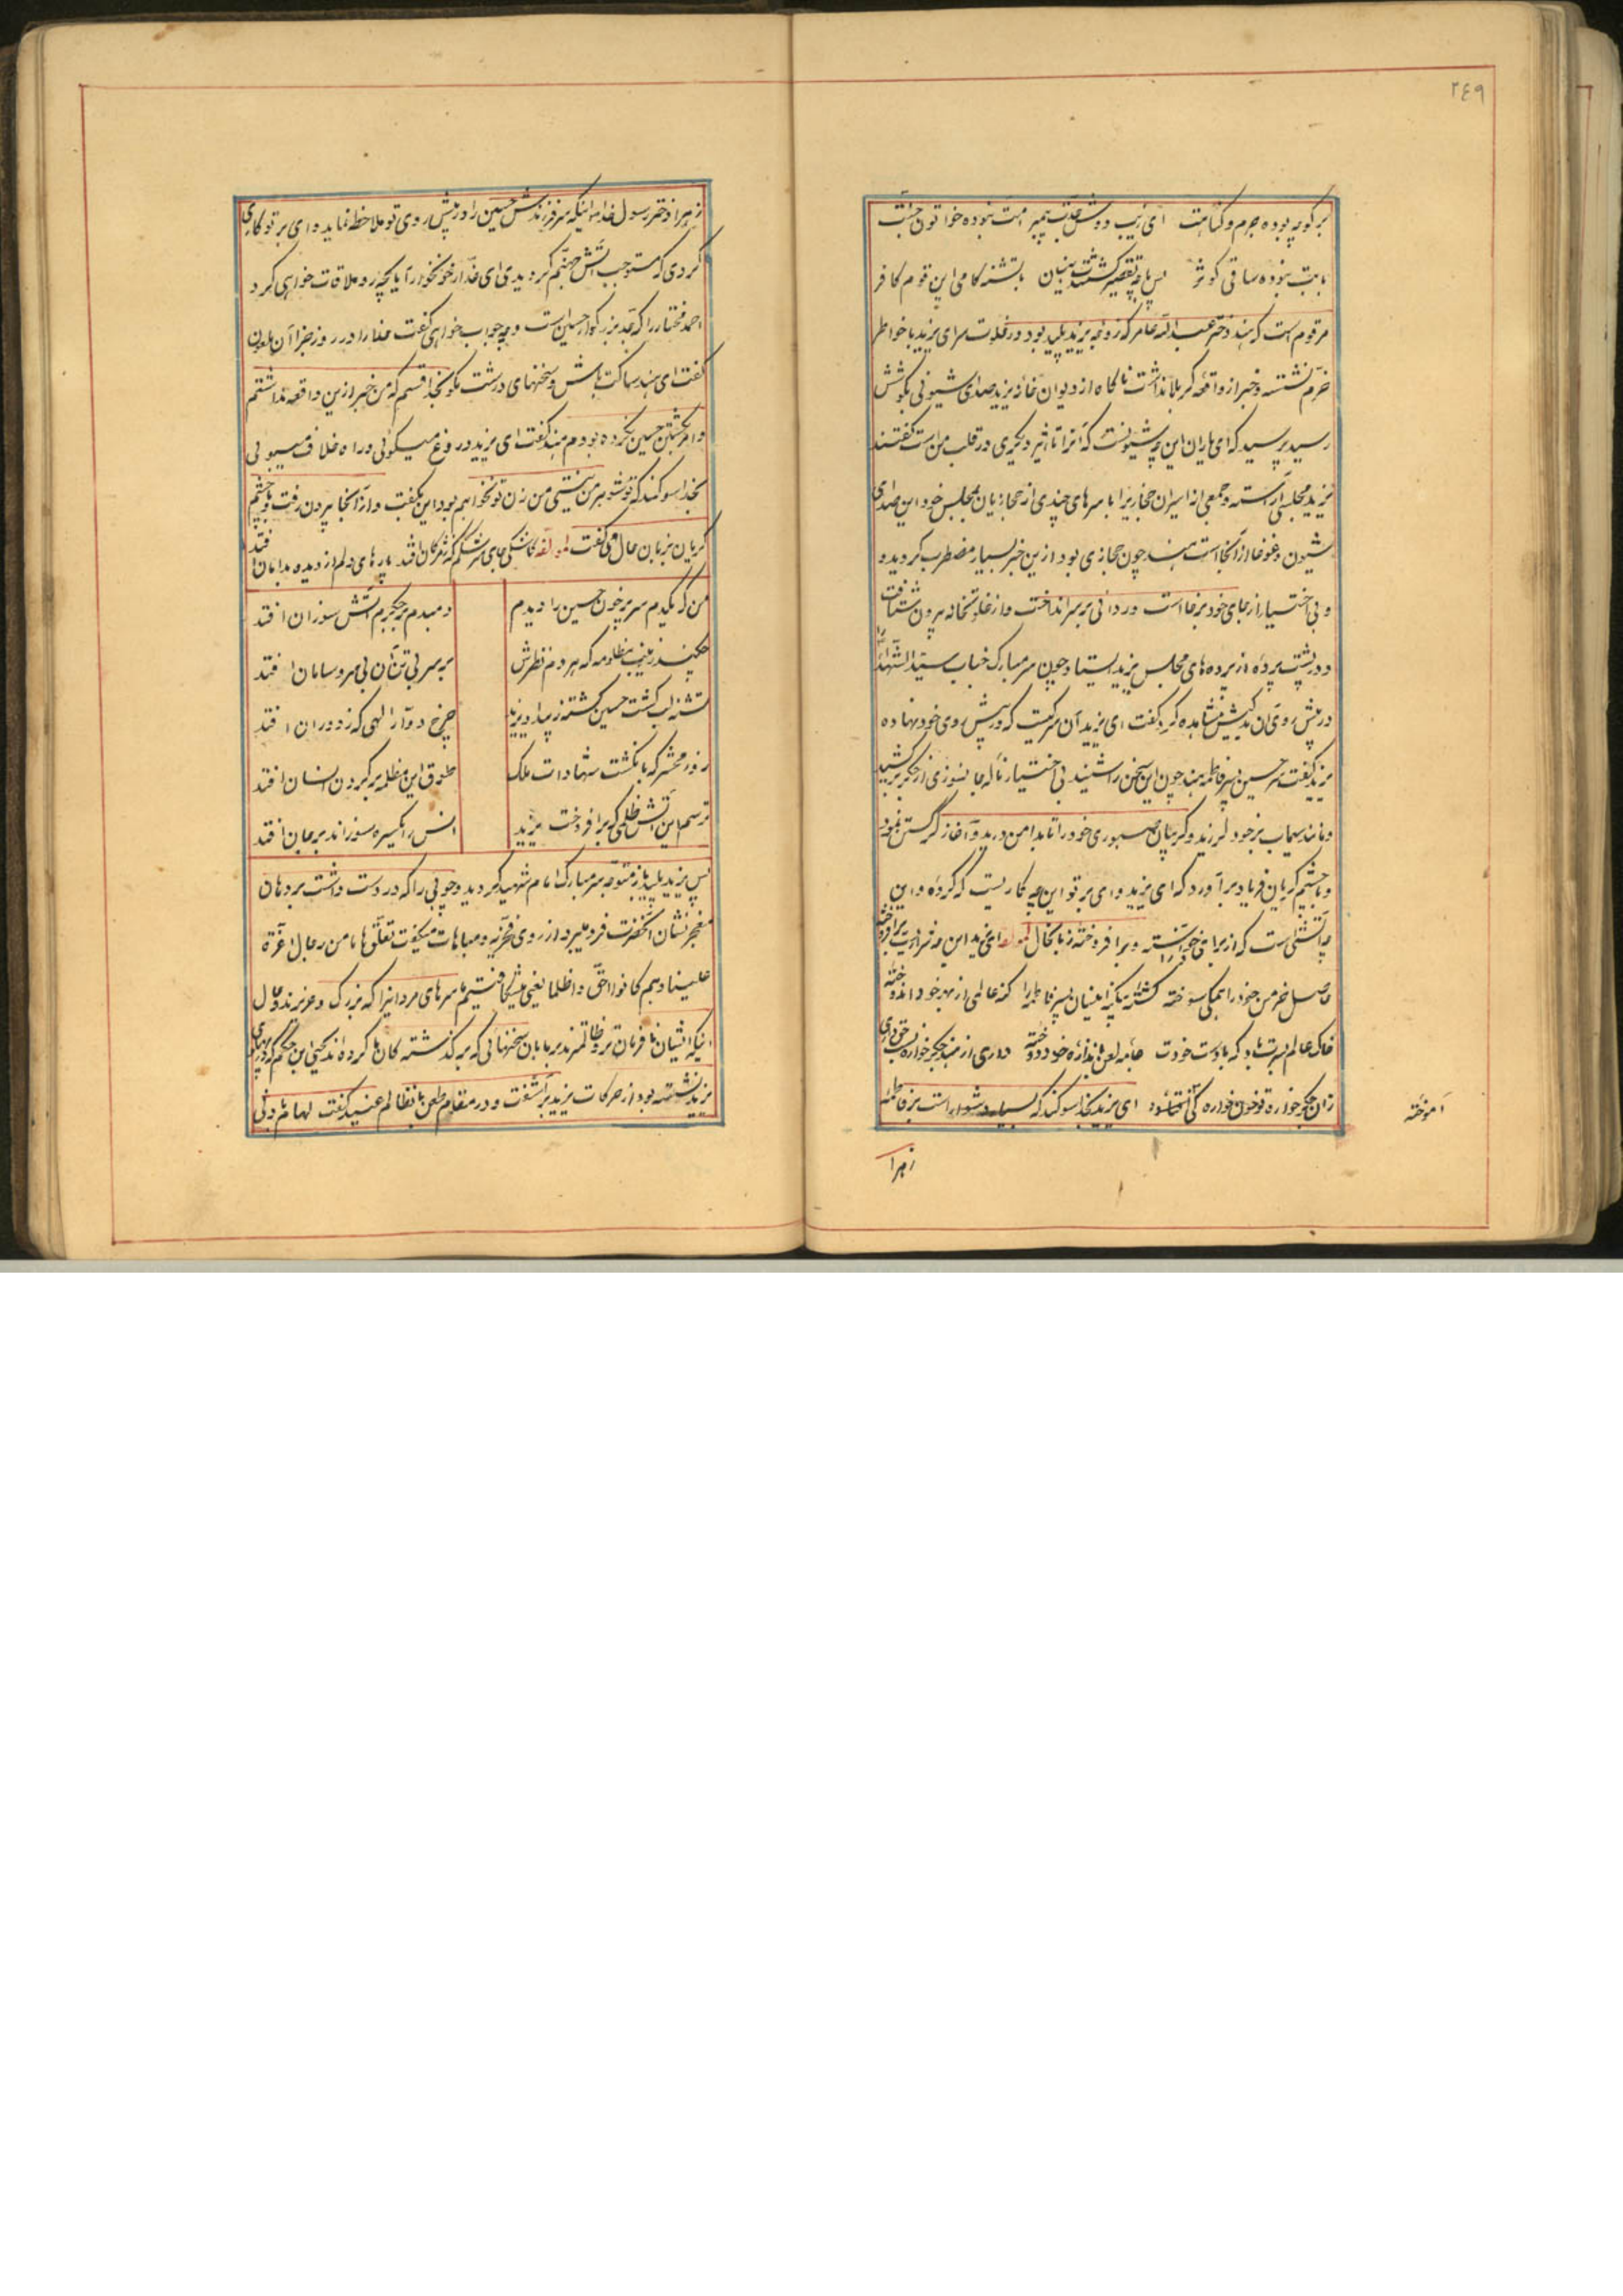 ٢٤٩
بر کو چه بوده جرم و گناهت ای زیب دوش جدت پیمبر امت نبوده خواتون جنت
بابت نبوده ساقی کوثر پس با چه تقصیر کشتند بنیان بتشنه کامی این قوم کافر
مرقوم است که هند دختر عبدالله عامر که زوجه یزید پلید بود در خلوت سرای یزید با خواطر
خرم نشسته و خبر از واقعه کربلا نداشت ناکاه از دیوان خانه یزید صدای شیونی بکوشش
رسید پرسید که ای یاران این چه شیونست که آنرا تاثیر دیگری در قلب من است گفتند
یزید مجلسی آراسته و جمعی از اسیران حجازیرا با سرهای چندی از حجازیان بمجلس خود این صدای
شیون و غوغا از آنجا است هند چون حجازی بود ازین خبر بسیار مضطرب گردید و
و بی اختیار از جای خود برخاست و ردائی بر سر انداخت و از خلوتخانه بیرون شتافت
و در پشت پرده از پرده های مجلس یزید ایستاد چون سر مبارک جناب سید الشهدا را
در پیش روی آن بدکیش مشاهده کرد گفت ای یزید آن سر کیست که در پیش روی خود نهاده
یزید گفت سر حسین پسر فاطمه هند چون این سخن را شنید بی اختیار ناله جانسوزی از جگر برکشید
و مانند سیماب بر خود لرزید و گریبان صبوری خود را تا بدامن درید و آغاز گریستن نمود
و با چشم گریان فریاد برآورد که ای یزید وای بر تو این چه کاریست که کرده و این
چه آتشی است که از برای خود آنسته و برافروخته زبانحال لمولفه ای یزید این چه شراریست برافروخته
حاصل خرمن خود را همگی سوخته کشته یکینه اینسان پسر فاطمه را کنه عالمی از بهر خود اندوخته
خاک عالم بسرت باد که با دست خودت جامه لعن باندازه خود دوخته داری از هند جگر خواره نسب حق داری
زان جگر خواره تو خون خواره گی آموخته ای یزید بخدا سوگند که بسیار دشوار است بر فاطمه
آموخته
زهرا
زهرا دختر رسول خدا اینکه سر فرزندش حسین را در پیش روی تو ملاحظه نماید وای بر تو کاری
کردی که مستوجب آتش جهنم کردیدی ای غدار خونخوار آیا بچه رو ملاقات خواهی کرد
احمد مختار را که جد بزرگوار حسین است و چه جواب خواهی گفت خدا را در روز جزا آن ملعون
گفت ای هند ساکت باش و سخنهای درشت مگو بخدا قسم که من خبر ازین واقعه نداشتم
و امر بکشتن حسین نکرده بودم هند گفت ای یزید دروغ میگوئی و راه خلاف میپوئی
بخدا سوگند که تو شوهر من نیستی من زن تو نخواهم بود این بگفت و از آنجا بیرون رفت و با چشم
گریان بزبان حال می گفت لمولفه کاشکی جای سرشکم که ز مژگان افتد پارهای دلم از دیده بدامان افتد
من که یکدم سر پر خون حسین را دیدم دمبدم بر جگرم آتش سوزان افتد
چکند زینب مظلومه که هر دم نظرش بر سر بی تن آن بی سر و سامان افتد
تشنه لب کشت حسین کشته ز بیداد یزید چرخ دوار الهی که ز دوران افتد
روز محشر که بانگشت شهادات ملک طوق این مظلمه بر گردن انسان افتد
ترسم این آتش ظلمی که برافروخت یزید انس را یکسره سوزاند بر جان افتد
پس یزید پلید باز متوجه سر مبارک امام شهید گردید و چوبی را که در دست داشت بر دهان
معجز نشان آنحضرت فرو میبرد از روی فخریه و مباهات میگفت نعلق هاما من رجال اعزة
علینا و هم کانوا احق و اظلما یعنی میشکافتیم ما سرهای مردانیرا که بزرگ و عزیزند و حال
اینکه ایشان نافرمان تر و ظالمترند بر ما بآن سخنهائی که بر گذشته کان ما کرده اند یحیی ابن حکم که در پهلوی
یزید نشسته بود از حرکات یزید برآشفت و در مقام طعن با نظالم عنید گفت لهام بادنی